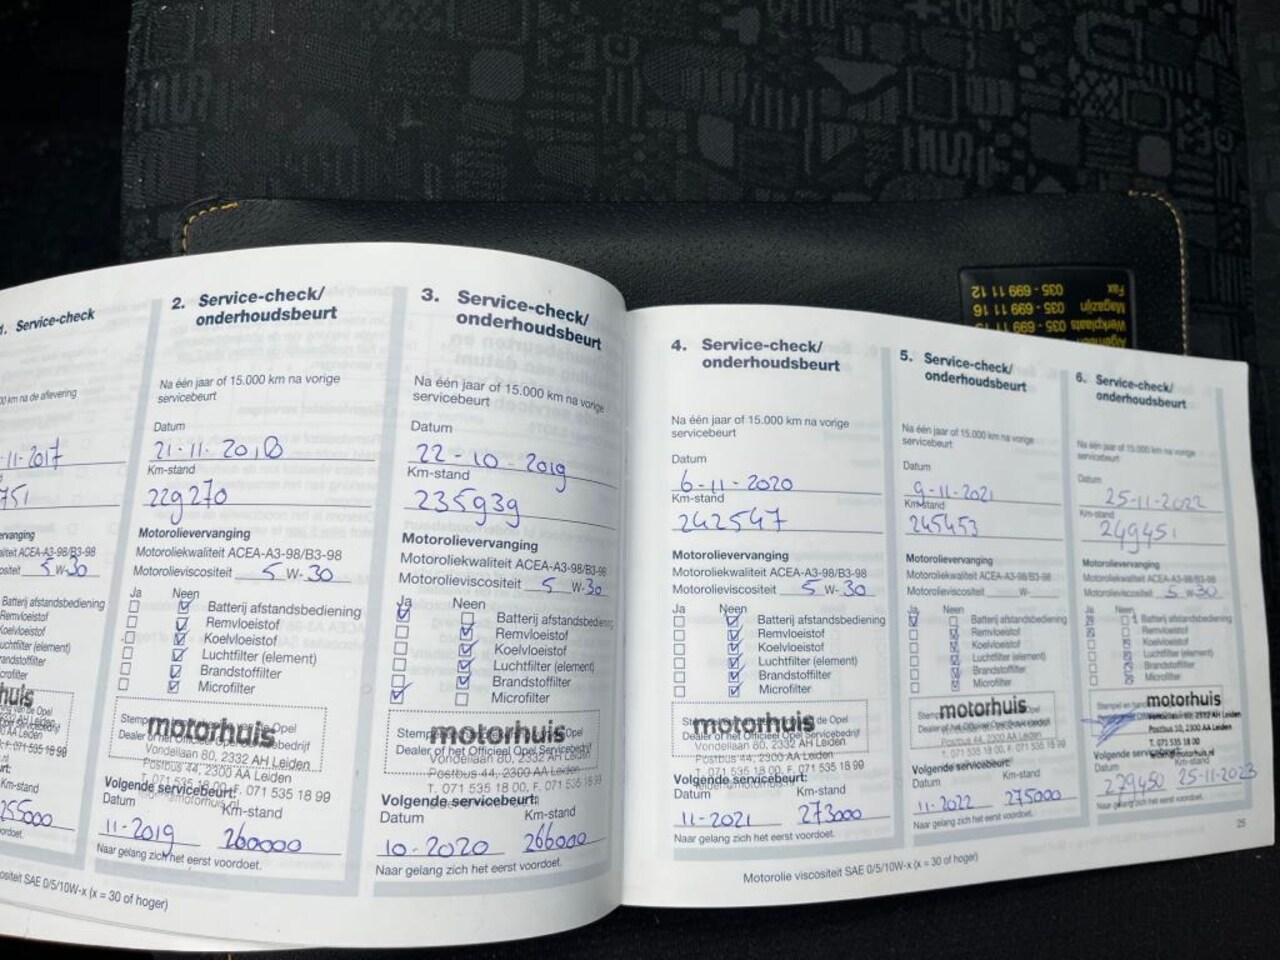 1. Service-check
-11-2017
751
5 W-30
Batterij afstandsbediening
55000
2. Service-check/
onderhoudsbeurt
Na één jaar of 15.000 km na vorige
servicebeurt
Datum
21-11-2018
Km-stand
229270
Motorolievervanging
Motoroliekwaliteit ACEA-A3-98/B3-98
Motorolieviscositeit 5 W-30
Ja Neen
Batterij afstandsbediening
Remvloeistof
Koelvloeistof
Luchtfilter (element)
Brandstoffilter
Microfilter
motorhuis
Vondellaan 80, 2332 AH Leiden
Postbus 44, 2300 AA Leiden
T. 071 535 18 00, F. 071 535 18 99
Volgende servicebeurt:
Datum Km-stand
11-2019 260000
Naar gelang zich het eerst voordoet.
3. Service-check/
onderhoudsbeurt
Na één jaar of 15.000 km na vorige
servicebeurt
Datum
22-10-2019
Km-stand
235939
Motorolievervanging
Motoroliekwaliteit ACEA-A3-98/B3-98
Motorolieviscositeit 5 W-30
Ja Neen
Batterij afstandsbediening
Remvloeistof
Koelvloeistof
Luchtfilter (element)
Brandstoffilter
Microfilter
motorhuis
Dealer of het Officieel Opel Servicebedrijf
Vondellaan 80, 2332 AH Leiden
Postbus 44, 2300 AA Leiden
T. 071 535 18 00, F. 071 535 18 99
Volgende servicebeurt:
Datum Km-stand
10-2020 266000
Naar gelang zich het eerst voordoet.
Motorolie viscositeit SAE 0/5/10W-x (x = 30 of hoger)
4. Service-check/
onderhoudsbeurt
Na één jaar of 15.000 km na vorige
servicebeurt
Datum
6-11-2020
Km-stand
242547
Motorolievervanging
Motoroliekwaliteit ACEA-A3-98/B3-98
Motorolieviscositeit 5 W-30
Ja Neen
Batterij afstandsbediening
Remvloeistof
Koelvloeistof
Luchtfilter (element)
Brandstoffilter
Microfilter
motorhuis
Dealer of het Officieel Opel Servicebedrijf
Vondellaan 80, 2332 AH Leiden
Postbus 44, 2300 AA Leiden
T. 071 535 18 00, F. 071 535 18 99
Volgende servicebeurt:
Datum Km-stand
11-2021 273000
Naar gelang zich het eerst voordoet.
5. Service-check/
onderhoudsbeurt
Na één jaar of 15.000 km na vorige
servicebeurt
Datum
9-11-2021
Km-stand
245453
Motorolievervanging
Motoroliekwaliteit ACEA-A3-98/B3-98
Motorolieviscositeit W-
Ja Neen
Batterij afstandsbediening
Remvloeistof
Koelvloeistof
Luchtfilter (element)
Brandstoffilter
Microfilter
motorhuis
Volgende servicebeurt:
Datum Km-stand
11-2022 275000
Naar gelang zich het eerst voordoet.
6. Service-check/
onderhoudsbeurt
Na één jaar of 15.000 km na vorige
servicebeurt
Datum
25-11-2022
Km-stand
249451
Motorolievervanging
Motoroliekwaliteit ACEA-A3-98/B3-98
Motorolieviscositeit 5 W-30
Ja Neen
Batterij afstandsbediening
Remvloeistof
Koelvloeistof
Luchtfilter (element)
Brandstoffilter
Microfilter
motorhuis
Vondellaan 80, 2332 AH Leiden
T. 071 535 18 00
Volgende servicebeurt:
Datum Km-stand
279450 25-11-2023
Naar gelang zich het eerst voordoet.
Motorolie viscositeit SAE 0/5/10W-x (x = 30 of hoger)
25
Werkplaats 035 - 699 11
Magazijn 035 - 699 11 16
Fax 035 - 699 11 12